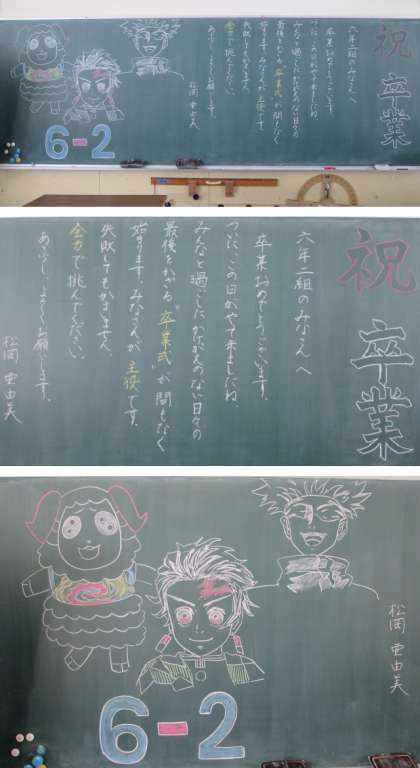 祝
卒業
六年二組のみなさんへ
卒業おめでとうございます。
ついにこの日がやって来ましたね。
みんなと過ごしたかけがえのない日々の
最後をかざる“卒業式”が間もなく
始まります。みなさんが主役です。
失敗してもかまいません。
全力で挑んでください。
よろしくお願いします。
松岡 亜由美
6-2